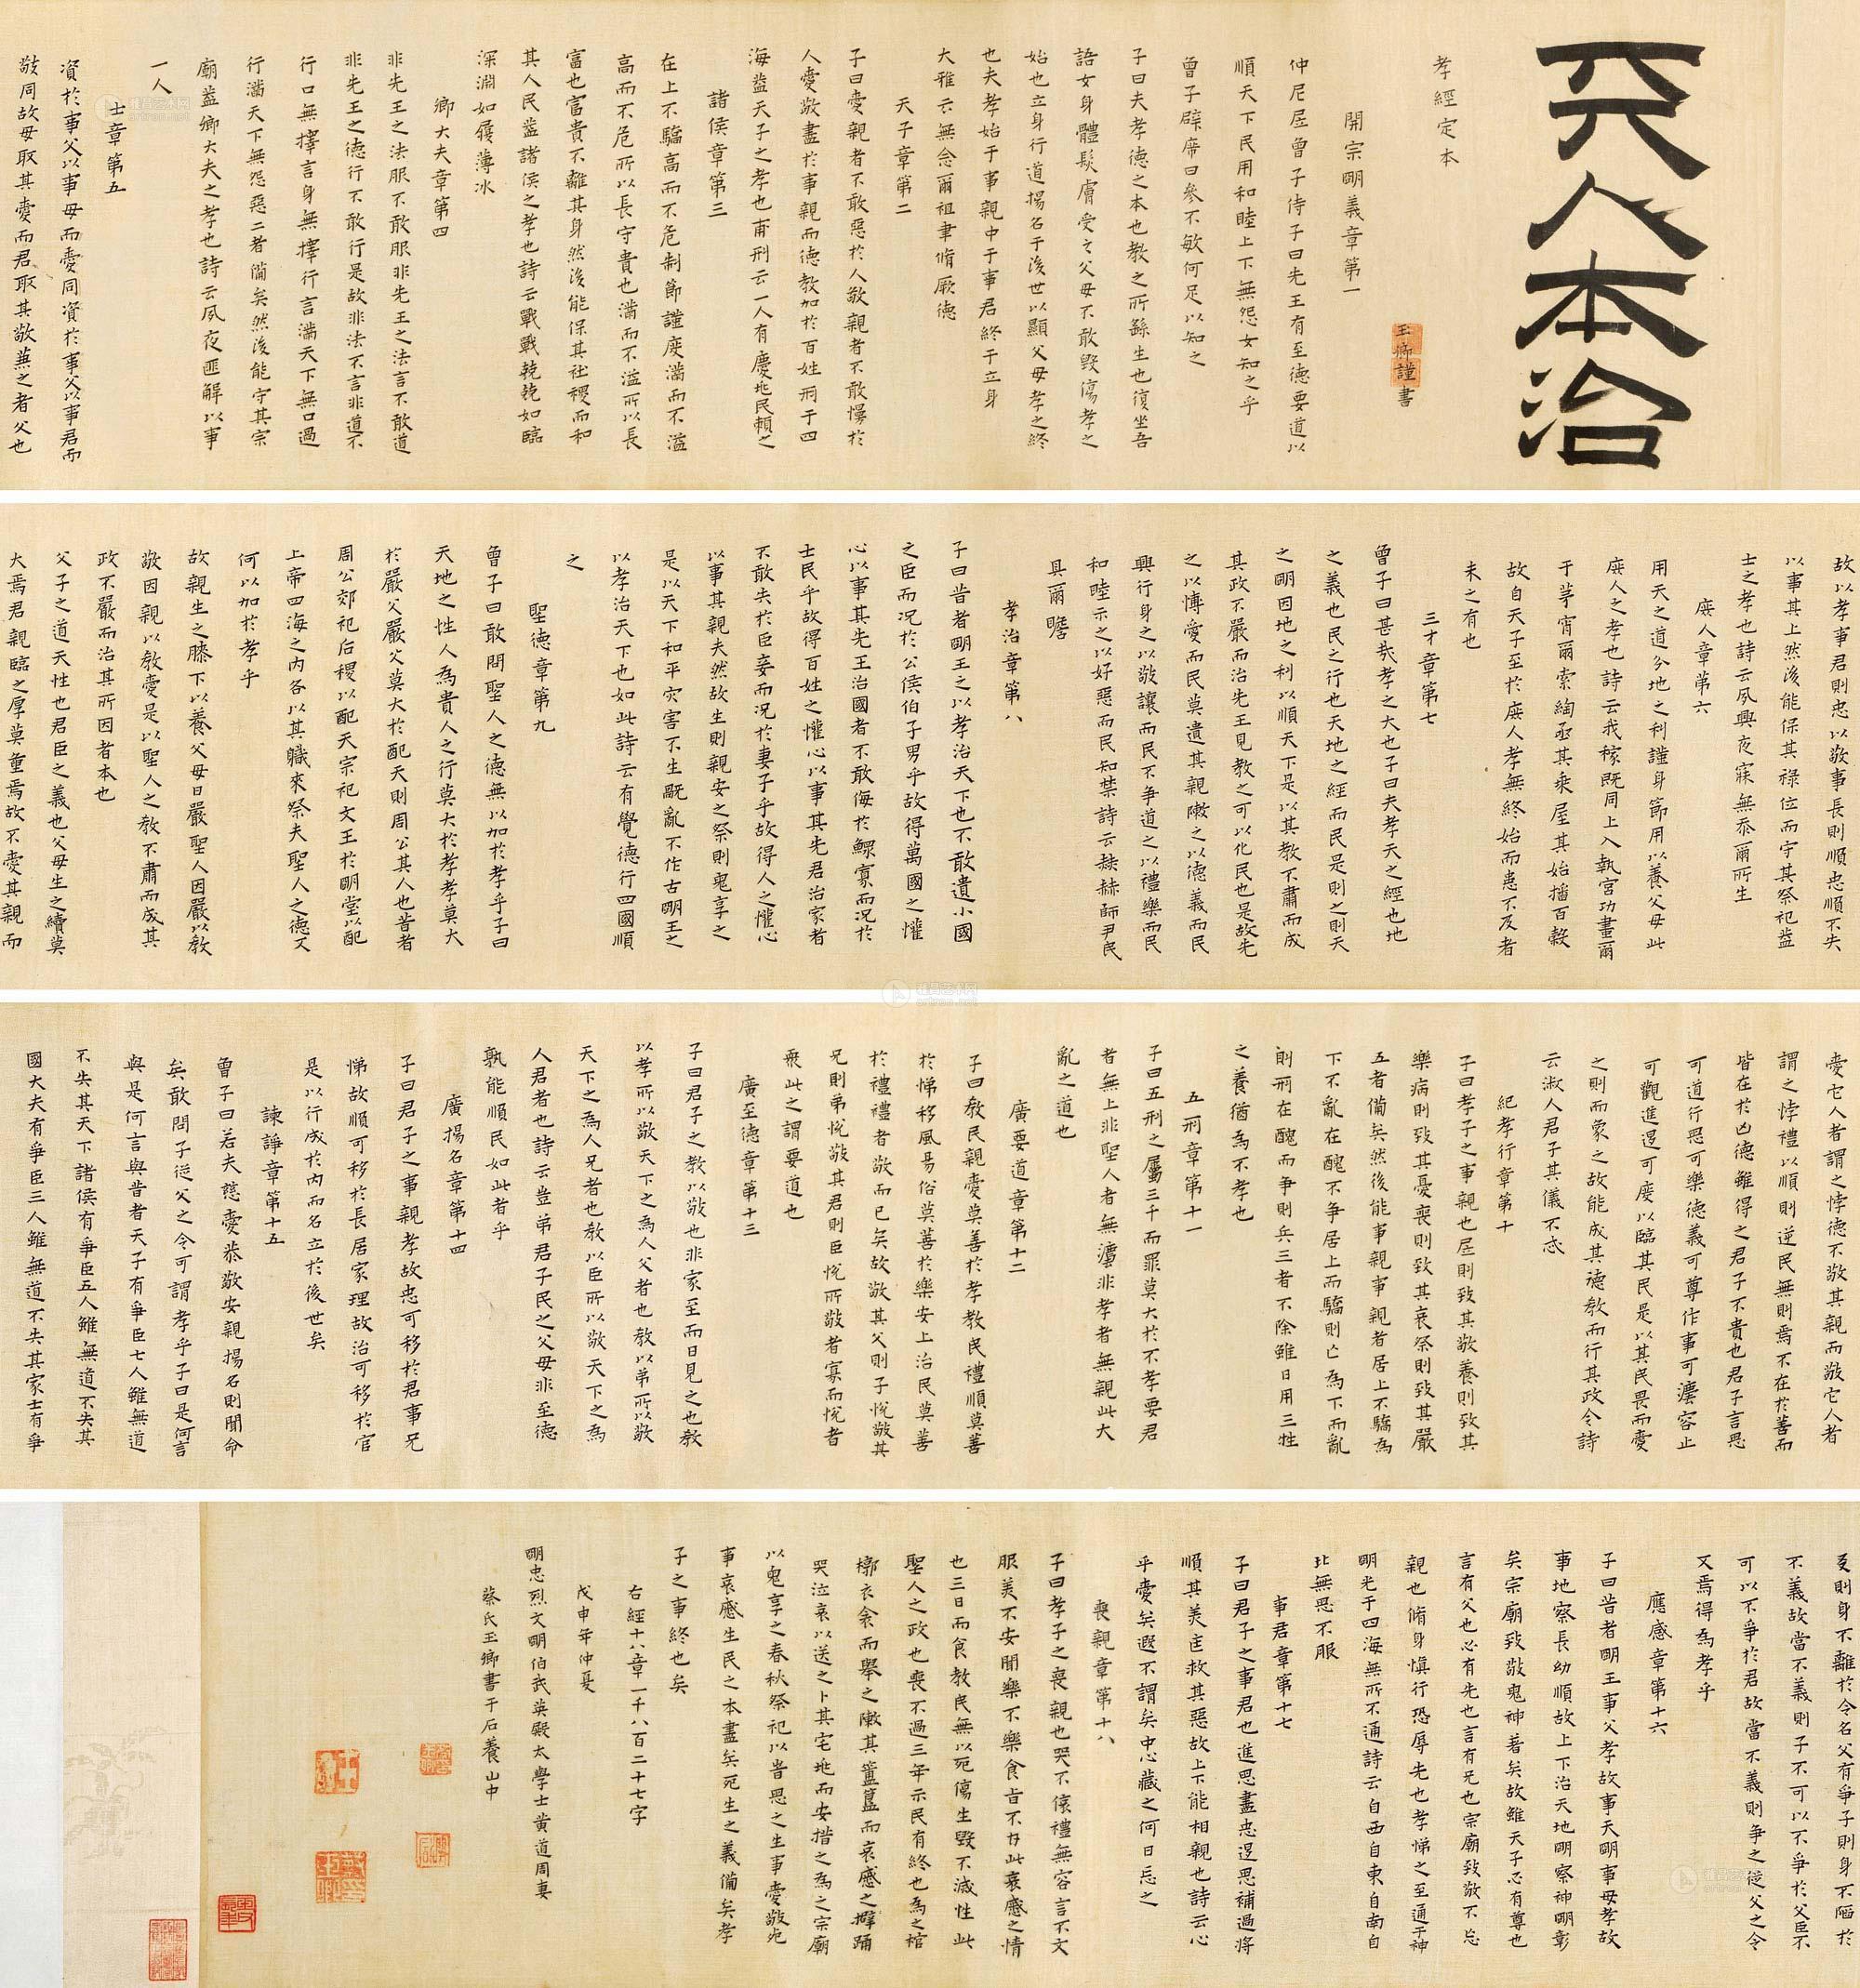 天人本治
孝經定本
玉卿謹書
開宗明義章第一
仲尼凥曾子侍子曰先王有至德要道以
順天下民用和睦上下無怨女知之乎
曾子辟席曰參不敏何足以知之
子曰夫孝德之本也教之所繇生也復坐吾
語女身體髮膚受之父母不敢毀傷孝之
始也立身行道揚名于後世以顯父母孝之終
也夫孝始于事親中于事君終于立身
大雅云無念爾祖聿脩厥德
天子章第二
子曰愛親者不敢惡於人敬親者不敢慢於
人愛敬盡於事親而德教加於百姓刑于四
海葢天子之孝也甫刑云一人有慶兆民賴之
諸侯章第三
在上不驕高而不危制節謹度滿而不溢
高而不危所以長守貴也滿而不溢所以長
富也富貴不離其身然後能保其社稷而和
其人民葢諸侯之孝也詩云戰戰兢兢如臨
深淵如履薄冰
卿大夫章第四
非先王之法服不敢服非先王之法言不敢道
非先王之德行不敢行是故非法不言非道不
行口無擇言身無擇行言滿天下無口過
行滿天下無怨惡三者備矣然後能守其宗
廟葢卿大夫之孝也詩云夙夜匪解以事
一人
士章第五
資於事父以事母而愛同資於事父以事君而
敬同故母取其愛而君取其敬兼之者父也
故以孝事君則忠以敬事長則順忠順不失
以事其上然後能保其祿位而守其祭祀葢
士之孝也詩云夙興夜寐無忝爾所生
庶人章第六
用天之道分地之利謹身節用以養父母此
庶人之孝也詩云我稼既同上入執宮功晝爾
于茅宵爾索綯亟其乘屋其始播百穀
故自天子至於庶人孝無終始而患不及者
未之有也
三才章第七
曾子曰甚哉孝之大也子曰夫孝天之經也地
之義也民之行也天地之經而民是則之則天
之明因地之利以順天下是以其教不肅而成
其政不嚴而治先王見教之可以化民也是故先
之以博愛而民莫遺其親陳之以德義而民
興行身之以敬讓而民不争道之以禮樂而民
和睦示之以好惡而民知禁詩云赫赫師尹民
具爾瞻
孝治章第八
子曰昔者明王之以孝治天下也不敢遺小國
之臣而況於公侯伯子男乎故得萬國之懽
心以事其先王治國者不敢侮於鰥寡而況於
士民乎故得百姓之懽心以事其先君治家者
不敢失於臣妾而況於妻子乎故得人之懽心
以事其親夫然故生則親安之祭則鬼享之
是以天下和平灾害不生旤亂不作古明王之
以孝治天下也如此詩云有覺德行四國順
之
聖德章第九
曾子曰敢問聖人之德無以加於孝乎子曰
天地之性人為貴人之行莫大於孝孝莫大
於嚴父嚴父莫大於配天則周公其人也昔者
周公郊祀后稷以配天宗祀文王於明堂以配
上帝四海之內各以其職來祭夫聖人之德又
何以加於孝乎
故親生之膝下以養父母日嚴聖人因嚴以教
敬因親以教愛是以聖人之教不肅而成其
政不嚴而治其所因者本也
父子之道天性也君臣之義也父母生之續莫
大焉君親臨之厚莫重焉故不愛其親而
愛它人者謂之悖德不敬其親而敬它人者
謂之悖禮以順則逆民無則焉不在於善而
皆在於凶德雖得之君子不貴也君子言思
可道行思可樂德義可尊作事可灋容止
可觀進退可度以臨其民是以其民畏而愛
之則而象之故能成其德教而行其政令詩
云淑人君子其儀不忒
紀孝行章第十
子曰孝子之事親也凥則致其敬養則致其
樂病則致其憂喪則致其哀祭則致其嚴
五者備矣然後能事親事親者居上不驕為
下不亂在醜不争居上而驕則亡為下而亂
則刑在醜而争則兵三者不除雖日用三牲
之養猶為不孝也
五刑章第十一
子曰五刑之屬三千而罪莫大於不孝要君
者無上非聖人者無灋非孝者無親此大
亂之道也
廣要道章第十二
子曰教民親愛莫善於孝教民禮順莫善
於悌移風易俗莫善於樂安上治民莫善
於禮禮者敬而已矣故敬其父則子悅敬其
兄則弟悅敬其君則臣悅所敬者寡而悅者
衆此之謂要道也
廣至德章第十三
子曰君子之教以敬也非家至而日見之也教
以孝所以敬天下之為人父者也教以弟所以敬
天下之為人兄者也教以臣所以敬天下之為
人君者也詩云豈弟君子民之父母非至德
孰能順民如此者乎
廣揚名章第十四
子曰君子之事親孝故忠可移於君事兄
悌故順可移於長居家理故治可移於官
是以行成於內而名立於後世矣
諫諍章第十五
曾子曰若夫慈愛恭敬安親揚名則聞命
矣敢問子從父之令可謂孝乎子曰是何言
與是何言與昔者天子有爭臣七人雖無道
不失其天下諸侯有爭臣五人雖無道不失其
國大夫有爭臣三人雖無道不失其家士有爭
友則身不離於令名父有爭子則身不陷於
不義故當不義則子不可以不爭於父臣不
可以不爭於君故當不義則争之從父之令
又焉得為孝乎
應感章第十六
子曰昔者明王事父孝故事天明事母孝故
事地察長幼順故上下治天地明察神明彰
矣宗廟致敬鬼神著矣故雖天子必有尊也
言有父也必有先也言有兄也宗廟致敬不忘
親也脩身慎行恐辱先也孝悌之至通于神
明光于四海無所不通詩云自西自東自南自
北無思不服
事君章第十七
子曰君子之事君也進思盡忠退思補過將
順其美匡救其惡故上下能相親也詩云心
乎愛矣遐不謂矣中心藏之何日忘之
喪親章第十八
子曰孝子之喪親也哭不偯禮無容言不文
服美不安聞樂不樂食旨不甘此哀慼之情
也三日而食教民無以死傷生毀不滅性此
聖人之政也喪不過三年示民有終也為之棺
槨衣衾而舉之陳其簠簋而哀慼之擗踊
哭泣哀以送之卜其宅兆而安措之為之宗廟
以鬼享之春秋祭祀以時思之生事愛敬死
事哀慼生民之本盡矣死生之義備矣孝
子之事終也矣
右經十八章一千八百二十七字
戊申年仲夏
明忠烈文明伯武英殿太學士黄道周妻
蔡氏玉卿書于石養山中